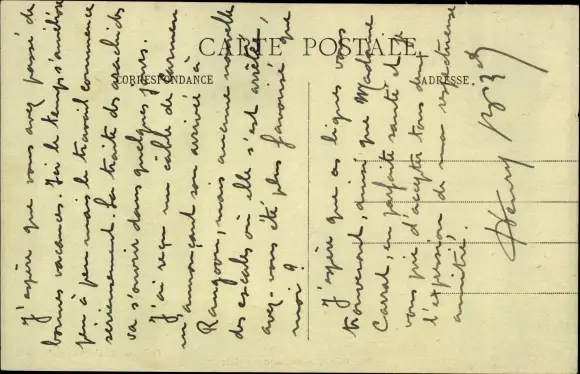 CARTE POSTALE
CORRESPONDANCE
ADRESSE.
J'espère que vous avez passé de
bonnes vacances. Ici le temps s'améliore
peu à peu mais le travail commence
serieusement. La traite des arachides
va s'ouvrir dans quelques jours.
J'ai reçu un câble de Carmen
m'annonçant son arrivée à
Rangoon, mais aucune nouvelle
des escales où elle s'est arrêtée,
avez-vous été plus favorisé que
moi?
J'espère que ces lignes vous
trouveront, ainsi que Madame
Carrat, en parfaite santé et je
vous prie d'accepter tous deux
l'expression de ma respectueuse
amitié.
Henry